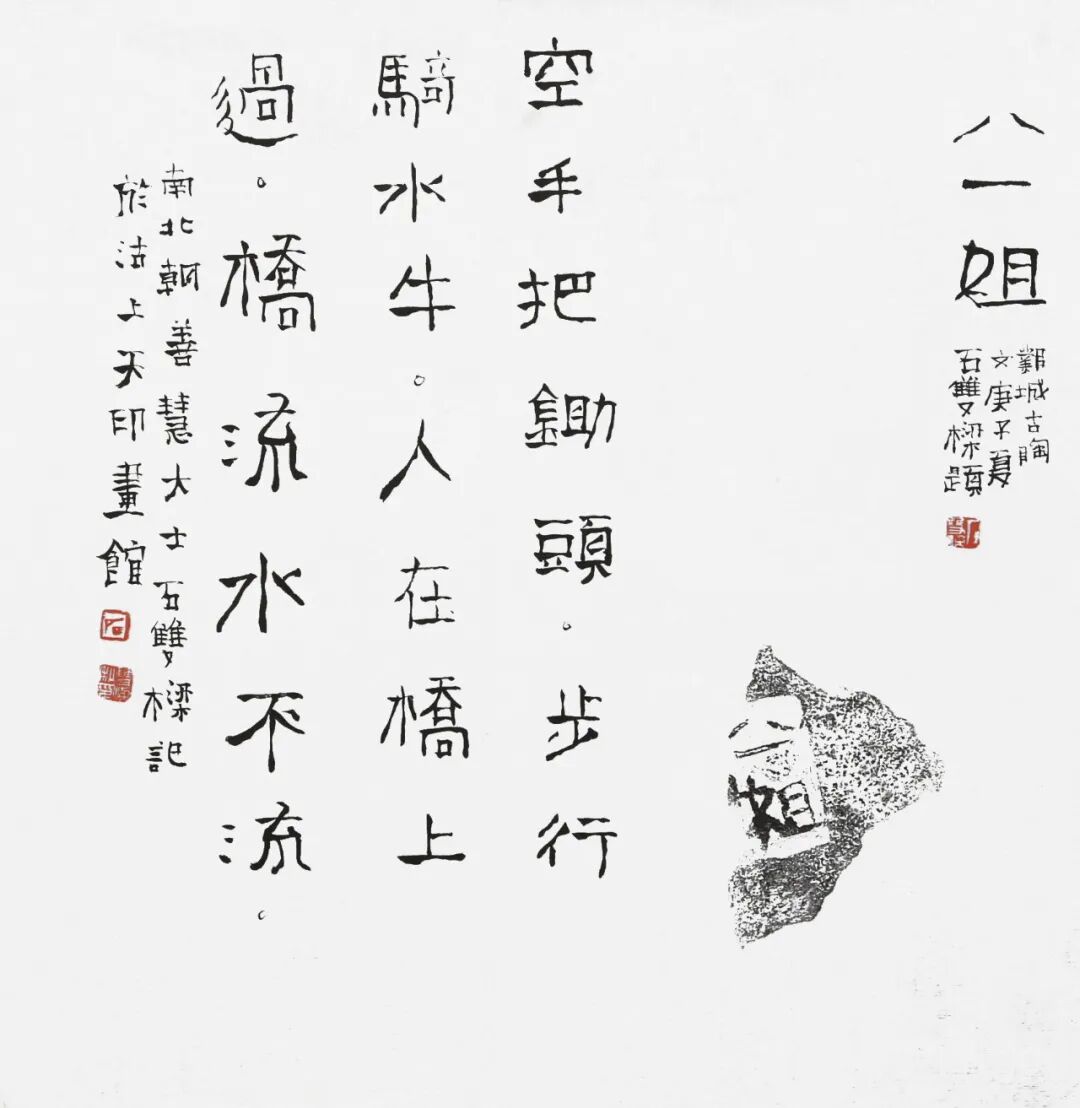 八一姐
鄴城古陶
文庚子夏
石雙樑題
八一姐
空手把鋤頭。步行
騎水牛。人在橋上
過。橋流水不流。
南北朝善慧大士石雙樑記
於沽上天印畫館
石